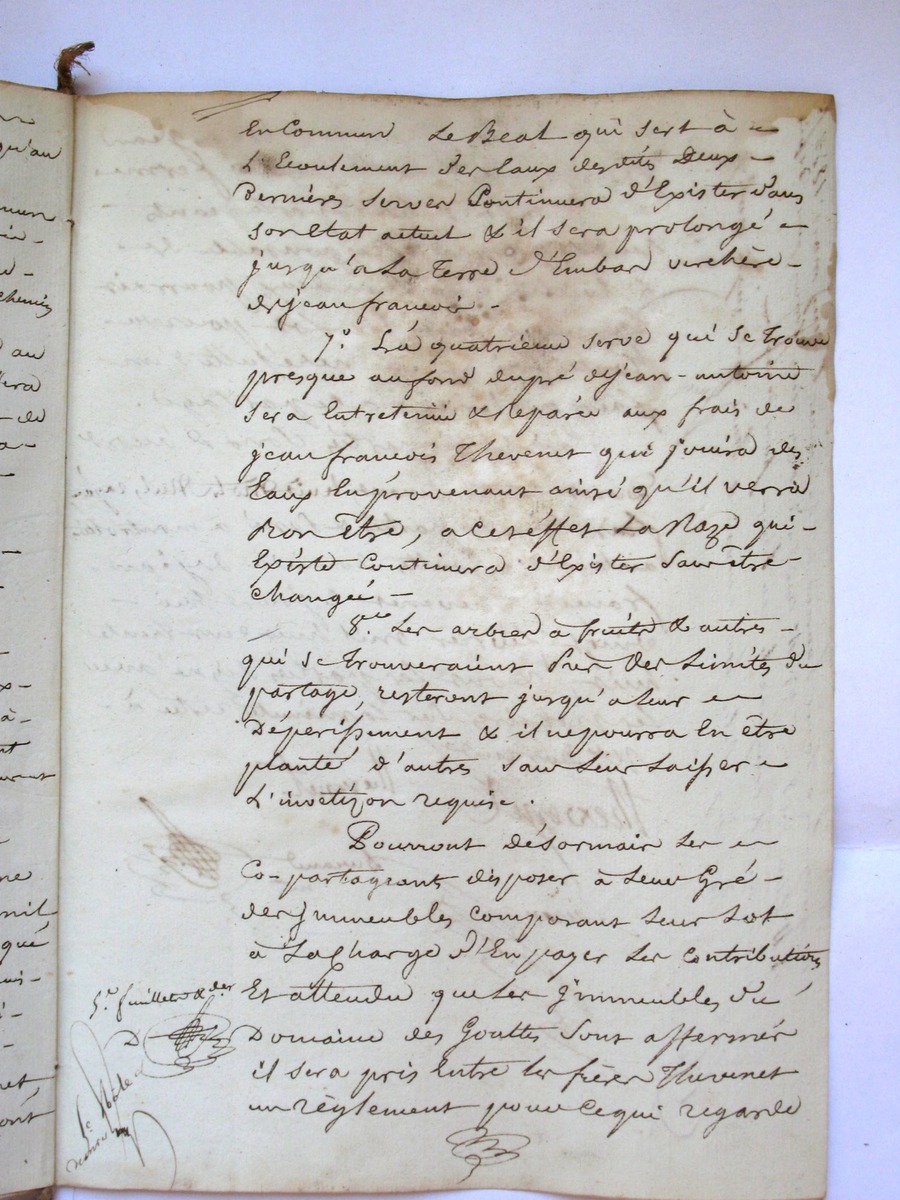 En Commun Le Béal qui sert à
L'Ecoulement des Eaux desdits Deux
Dernières serves Continuera d'Exister dans
son Etat actuel & il sera prolongé
jusqu'à La Terre d'Embas verchère
de jean francois.
7.º La quatrieme serve qui se trouve
presque au fond du pré de jean-antoine
sera Entretenue & Reparée aux frais de
jean francois Thevenet qui jouira des
Eaux En provenant ainsi qu'il verra
Bon être, a cet éffet La Raze qui
Existe Continuera d'Exister sans être
changée
8.º Les arbres à fruits & autres
qui se trouveraient sur Les Limites du
partage, resteront jusqu'a leur
Dépérissement & il ne pourra En être
planté d'autres sans Leur Laisser
L'invétizon requise.
Pourront désormais Les
Co-partageants disposer à Leur Gré
des jmmeubles composant Leur Lot
à La Charge d'En payer Les Contributions
Et attendu que Les jmmeubles du
Domaine des Gouttes sont affermés
il sera pris Entre les frères Thevenet
un règlement pour ce qui regarde
5.e feuillet & der
D